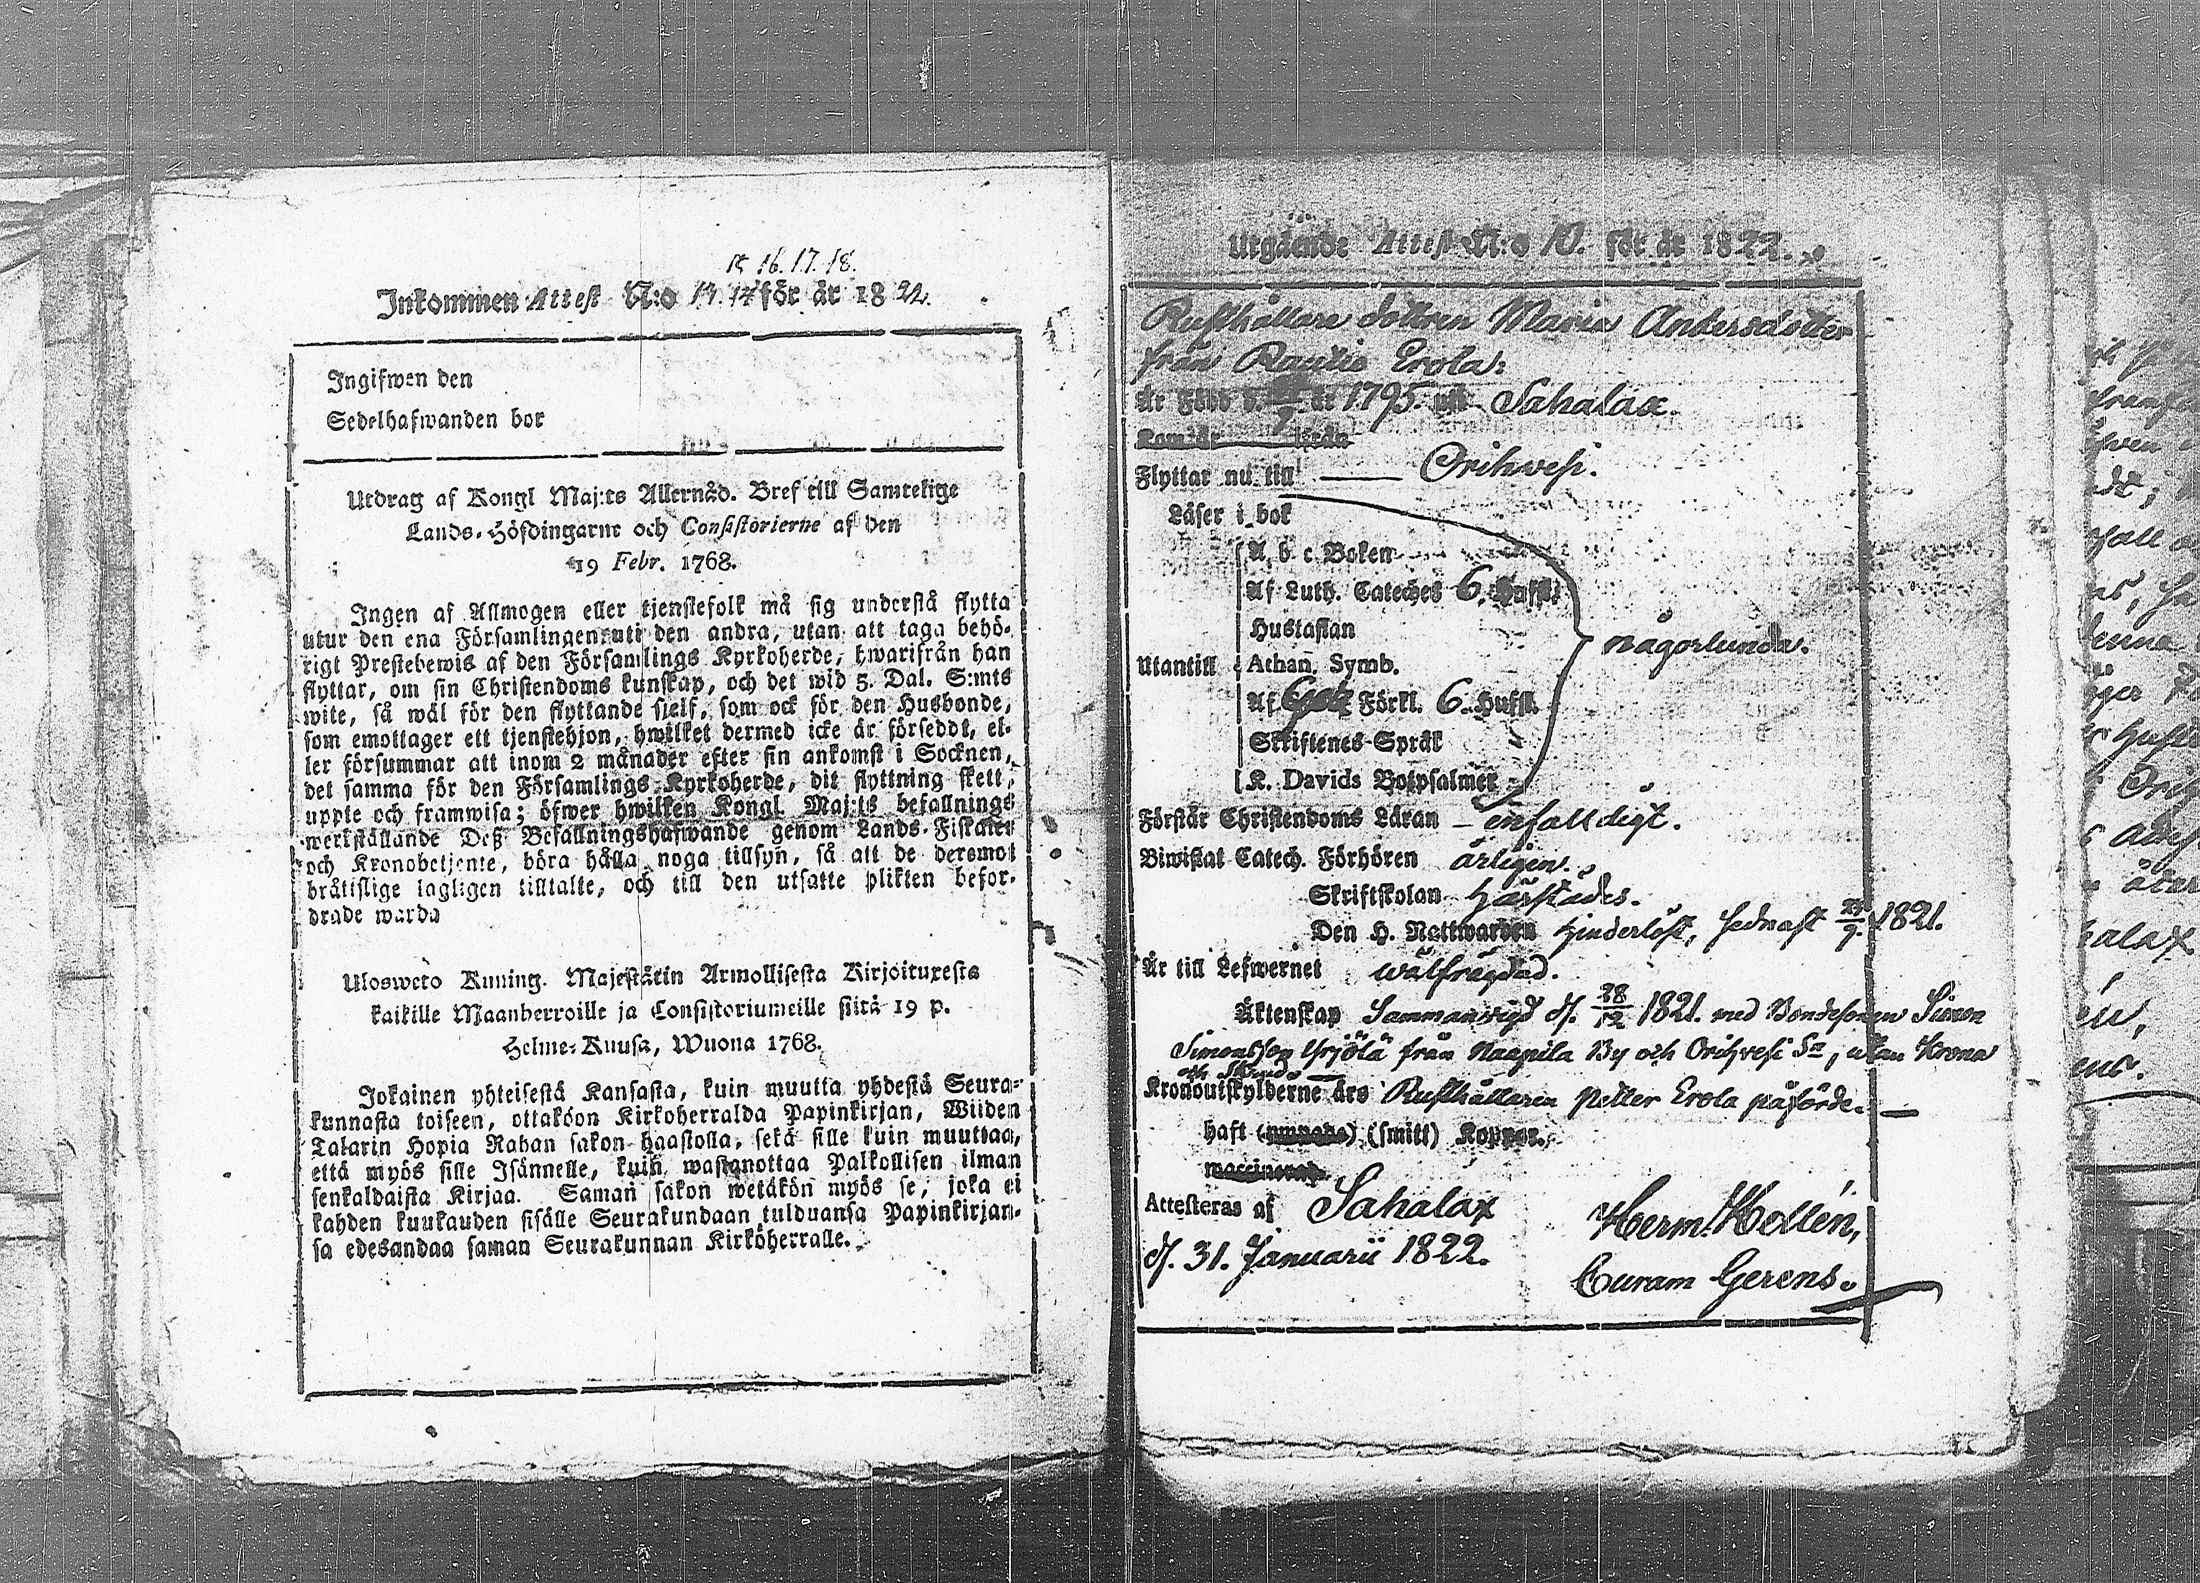 15 16. 17. 18.
Inkommen Attest N:o 13. 14 för år 1822.
Ingifwen den
Sedelhafwanden bor
Utdrag af Kongl Maj:ts Allernåd. Bref till Samtelige
Lands-Höfdingarne och Consistorierne af den
19 Febr. 1768.
Ingen af Allmogen eller tjenstefolk må sig understå flytta
utur den ena Församlingen uti den andra, utan att taga behö-
rigt Prestebewis af den Församlings Kyrkoherde, hwarifrån han
flyttar, om sin Christendoms kunskap, och det wid 5. Dal. S:mts
wite, så wäl för den flyttande sielf, som ock för den Husbonde,
som emottager ett tjenstehjon, hwilket dermed icke är försedt, el-
ler försummar att inom 2 månader efter sin ankomst i Socknen,
det samma för den Församlings Kyrkoherde, dit flyttning skett,
uppte och framwisa; öfwer hwilken Kongl. Maj:ts befallnings
werkställande Deß Befallningshafwande genom Lands-Fiskaler
och Kronobetjente, böra hålla noga tillsyn, så att de deremot
bråtislige lagligen tilltalte, och till den utsatte plikten befor-
drade warda
Ulosweto Kuning. Majestätin Armollisesta Kirjoituxesta
kaikille Maanherroille ja Consistoriumeille siitä 19 p.
Helme-Kuusa, Wuona 1768.
Jokainen yhteisestä Kansasta, kuin muutta yhdestä Seura-
kunnasta toiseen, ottakoon Kirkoherralda Papinkirjan, Wiiden
Talarin Hopia Rahan sakon haastolla, sekä sille kuin muuttaa,
että myös sille Isännelle, kuin wastanottaa Palkollisen ilman
senkaldaista Kirjaa. Saman sakon wetäkön myös se, joka ei
kahden kuukauden sisälle Seurakundaan tulduansa Papinkirjan-
sa edesandaa saman Seurakunnan Kirköherralle.
Utgående Attest N:o 10. för år 1822.
Rusthållare dottren Maria Andersdotter
från Rautio Erola:
Är Född d. 7 år 1795. uti Sahalax.
Kom år från
Flyttar nu till Orihvesi.
Läser i bok
A, b c Boken
Af Luth. Cateches 6. Hufst.
Hustaflan
någorlunda.
Utantill Athan. Symb.
Af Förkl. 6. Hufst.
Skriftenes Språk
K. Davids Botpsalmer
Förstår Christendoms Läran enfalldigt.
Biwistat Catech. Förhören årligen.
Skriftskolan härstädes.
Den H. Nattwarden hinderlöst, sednast 9. 1821.
Är till Lefwernet wälfrägdad.
Äktenskap Sammanvigd d. 28/12 1821. med Bondesonen Simon
Simonsson Yrjölä från Naapila By och Orihvesi Sn, utan Krono
Kronoutskylderne äro Rusthållaren Petter Erola påförde.
haft (ympade) (smitt) Koppor.
waccinerad
Attesteras af Sahalax
d. 31. Januarii 1822.
Herm. Hollén,
Curam Gerens.